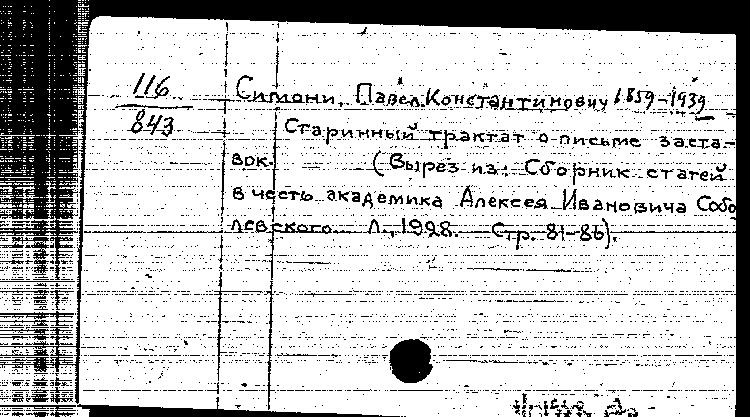 116
843
Симони, Павел Константинович 1859-1939
Старинный трактат о письме заста-
вок. (Вырез из: Сборник статей
в честь академика Алексея Ивановича Собо
левского. Л., 1928. Стр. 81-86).